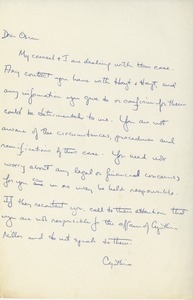 Dear Oscar
My counsel & I are dealing with this case.
Any contact you have with Hoyt & Hoyt, and
any information you give to or confirm for them
could be detrimental to me. You are not
aware of the circumstances, procedures and
ramifications of this case. You need not
worry about any legal or financial concerns
for you can in no way be held responsible.
If they recontact you, call to their attention that
you are not responsible for the affairs of Cynthia
Miller and to not speak to them.
Cynthia